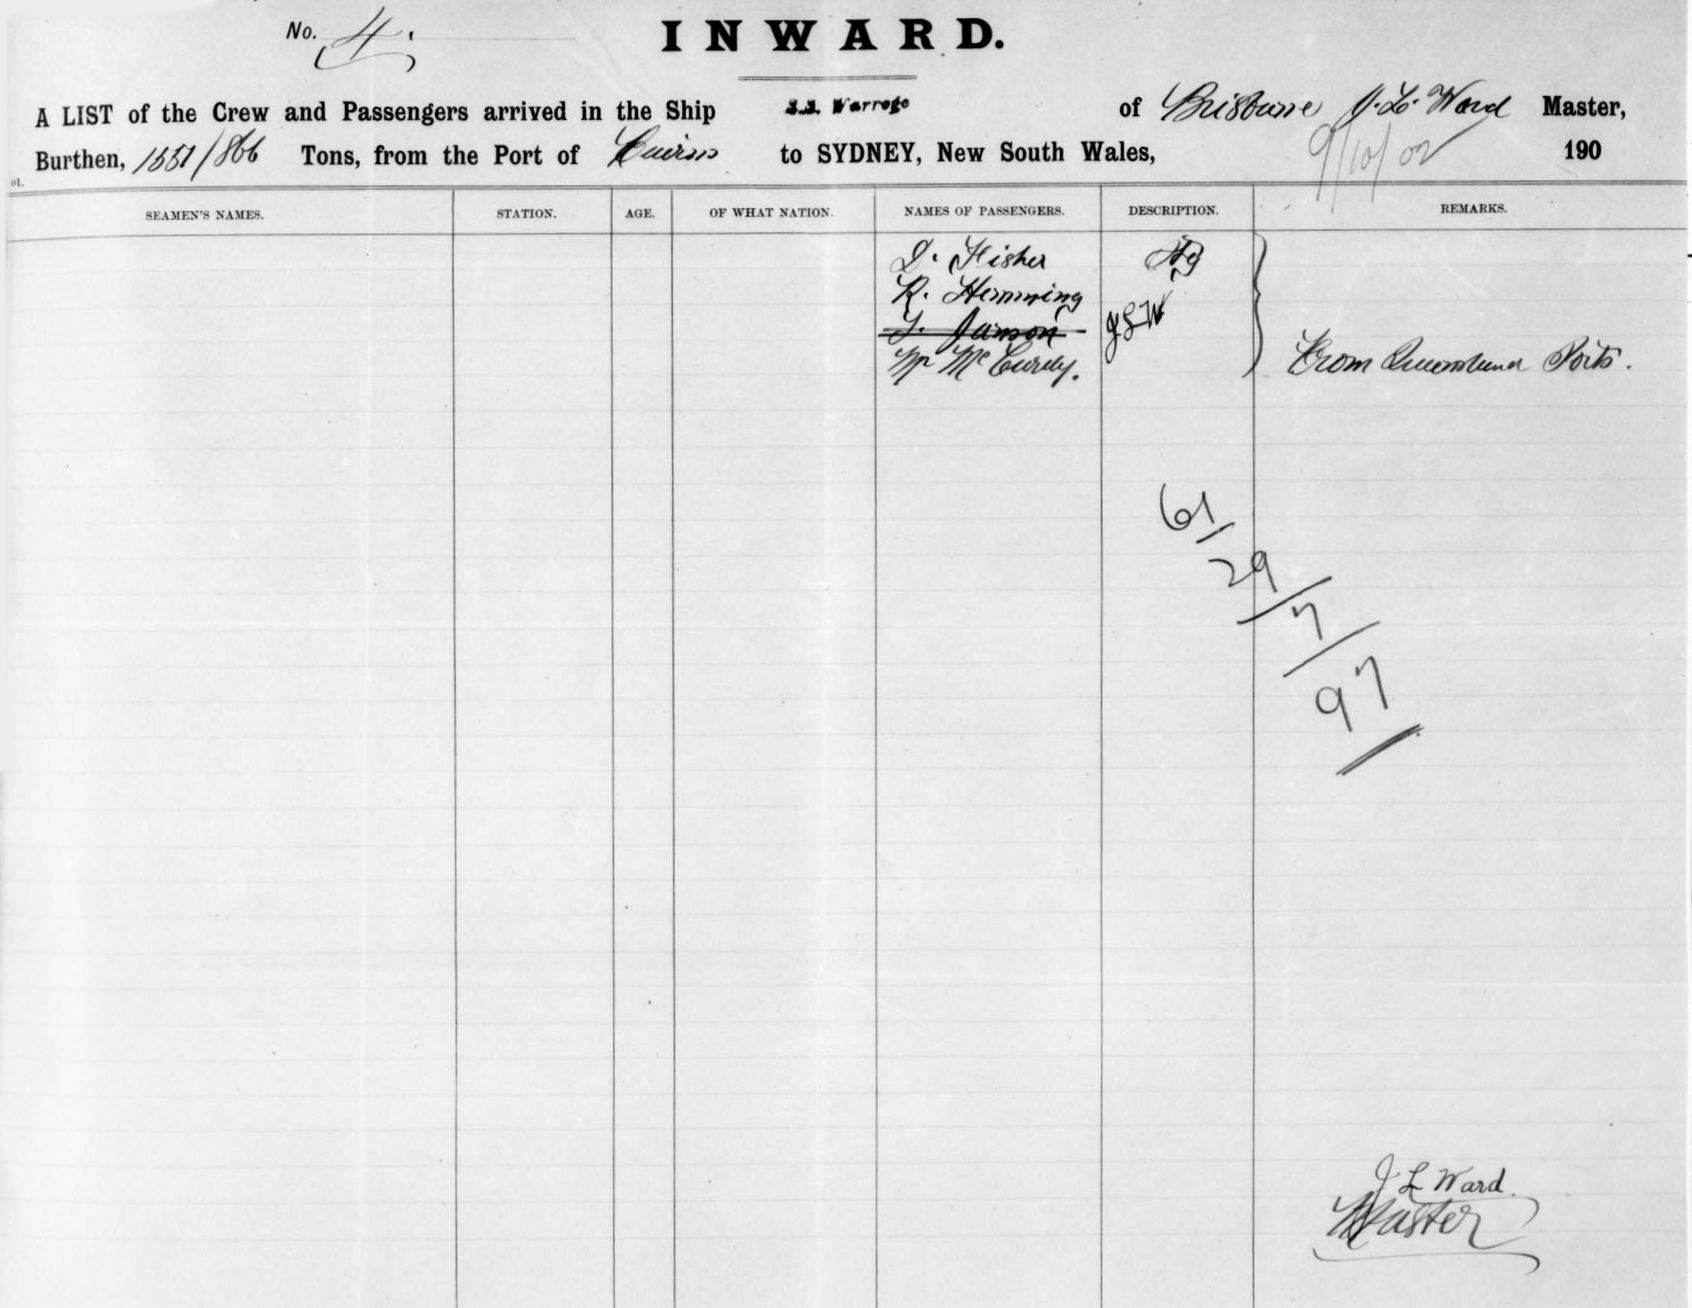 No. 4.
INWARD.
A LIST of the Crew and Passengers arrived in the Ship S.S. Warrego of Brisbane J. L. Ward Master,
Burthen, 1551/866 Tons, from the Port of Cairns to SYDNEY, New South Wales, 9/10/02 190
01.
SEAMEN'S NAMES. STATION. AGE. OF WHAT NATION. NAMES OF PASSENGERS. DESCRIPTION. REMARKS.
D. Fisher
R. Hemming
J. Janson JLW
Mr McCurdy. From Queensland Ports.
61/
29/
7/
97
J L Ward
Master